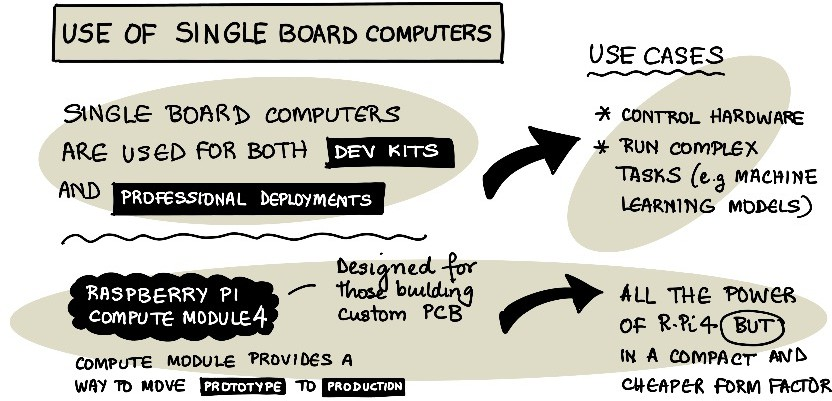 USE OF SINGLE BOARD COMPUTERS
SINGLE BOARD COMPUTERS
ARE USED FOR BOTH DEV KITS
AND PROFESSIONAL DEPLOYMENTS
USE CASES
* CONTROL HARDWARE
* RUN COMPLEX
TASKS (e.g MACHINE
LEARNING MODELS)
RASPBERRY PI
COMPUTE MODULE 4
Designed for
those building
custom PCB
COMPUTE MODULE PROVIDES A
WAY TO MOVE PROTOTYPE TO PRODUCTION
ALL THE POWER
OF R-Pi 4 BUT
IN A COMPACT AND
CHEAPER FORM FACTOR